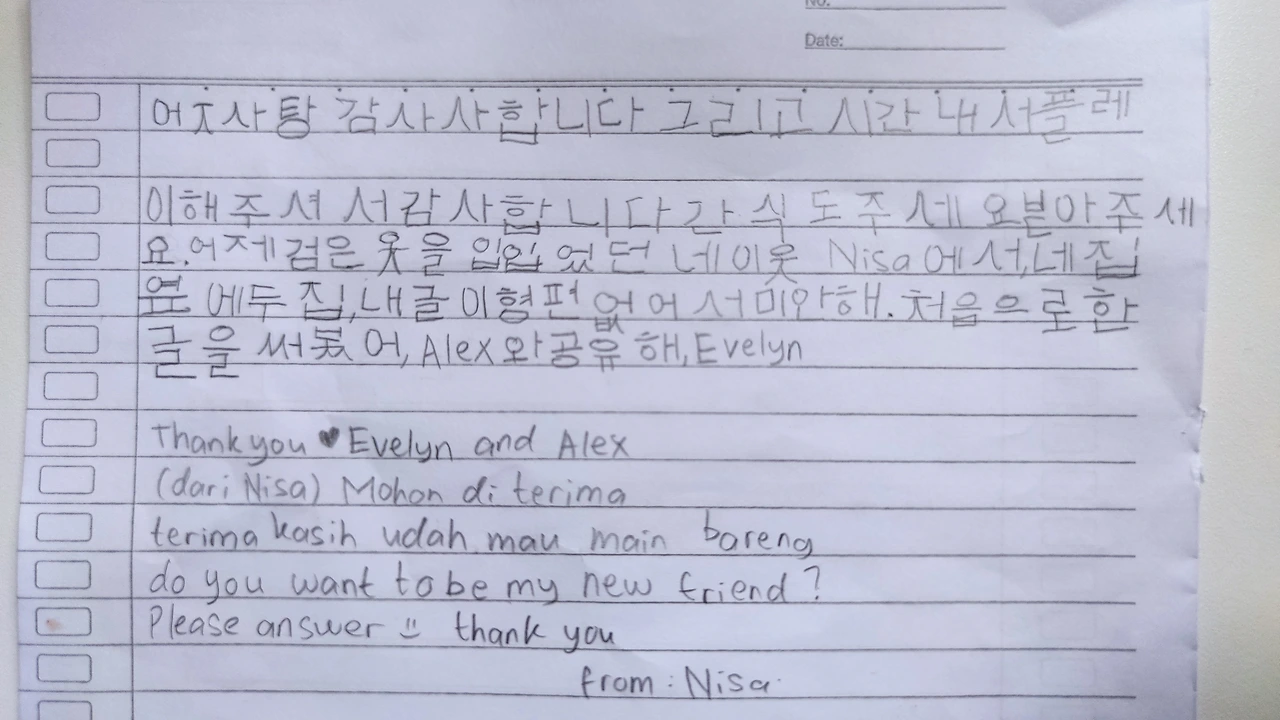 No.
Date:
어ㅈ사탕 감사사합니다 그리고 시간 내서플레
이해주셔서감사합니다간식도주세요받아주세
요.어제검은옷을입입었던네이웃 Nisa에서,네집
옆에두집,내글이형편없어서미안해.처음으로한
글을써봤어,Alex와공유해,Evelyn
Thank you ♥ Evelyn and Alex
(dari Nisa) Mohon di terima
terima kasih udah mau main bareng
do you want to be my new friend?
Please answer ü thank you
from : Nisa